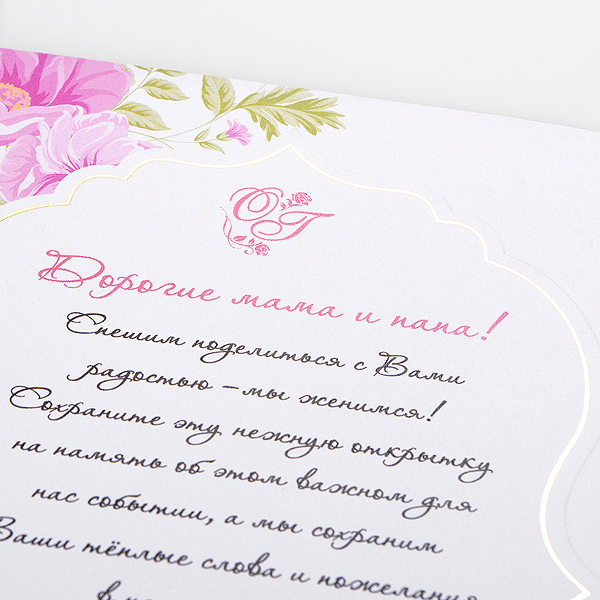 ОГ
Дорогие мама и папа!
Спешим поделиться с Вами
радостью – мы женимся!
Сохраните эту нежную открытку
на память об этом важном для
нас событии, а мы сохраним
Ваши тёплые слова и пожелания